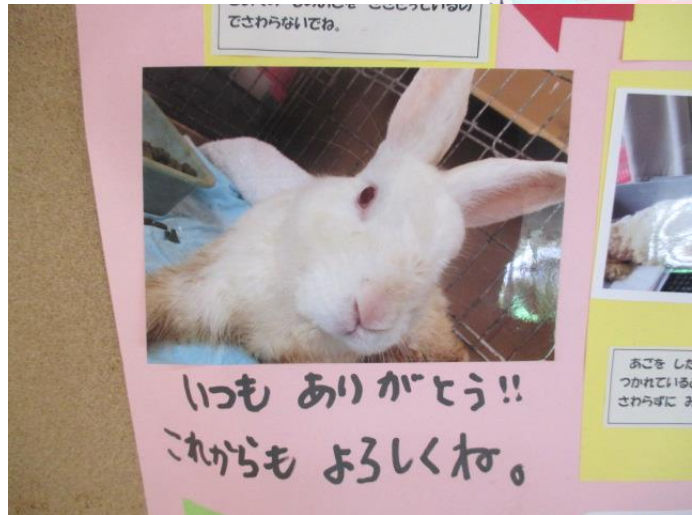 でさわらないでね。
いつも ありがとう!!
これからも よろしくね。
あごを した
つかれている
さわらずに み